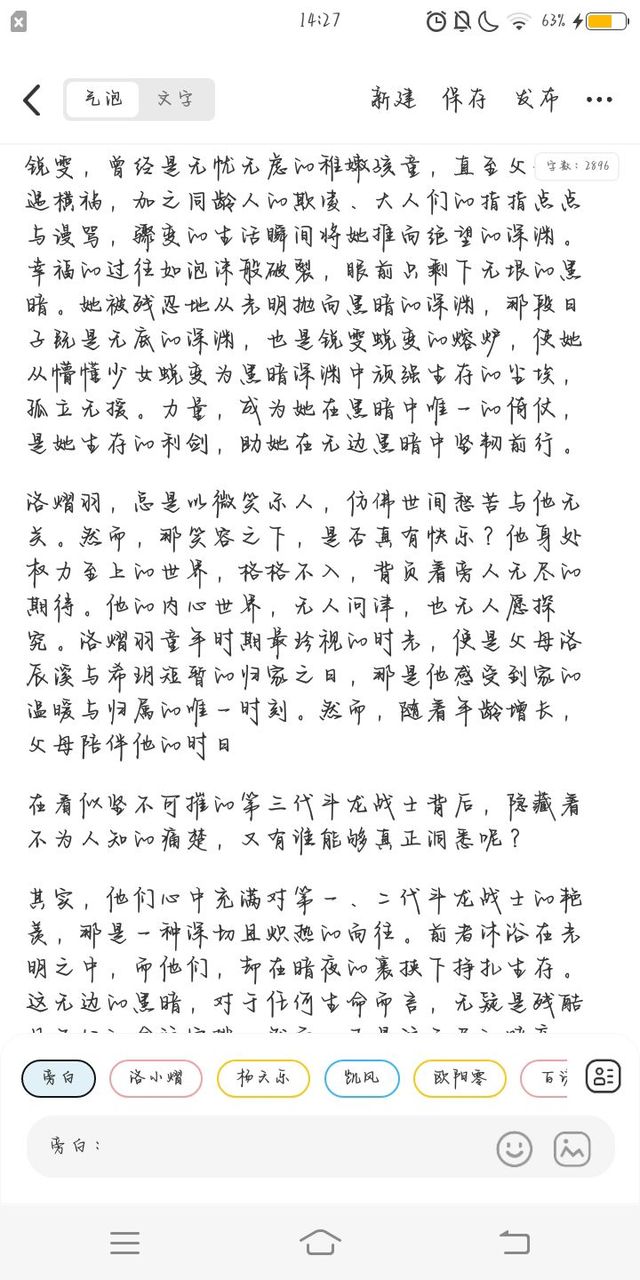 14:27
63%
气泡
文字
新建
保存
发布
字数：2896
锐雯，曾经是无忧无虑的稚嫩孩童，直至父
遇横祸，加之同龄人的欺凌、大人们的指指点点
与谩骂，骤变的生活瞬间将她推向绝望的深渊。
幸福的过往如泡沫般破裂，眼前只剩下无垠的黑
暗。她被残忍地从光明抛向黑暗的深渊，那段日
子既是无底的深渊，也是锐雯蜕变的熔炉，使她
从懵懂少女蜕变为黑暗深渊中顽强生存的尘埃，
孤立无援。力量，成为她在黑暗中唯一的倚仗，
是她生存的利剑，助她在无边黑暗中坚韧前行。
洛熠羽，总是以微笑示人，仿佛世间愁苦与他无
关。然而，那笑容之下，是否真有快乐？他身处
权力至上的世界，格格不入，背负着旁人无尽的
期待。他的内心世界，无人问津，也无人愿探
究。洛熠羽童年时期最珍视的时光，便是父母洛
辰溪与希玥短暂的归家之日，那是他感受到家的
温暖与归属的唯一时刻。然而，随着年龄增长，
父母陪伴他的时日
在看似坚不可摧的第三代斗龙战士背后，隐藏着
不为人知的痛楚，又有谁能够真正洞悉呢？
其实，他们心中充满对第一、二代斗龙战士的艳
羡，那是一种深切且炽热的向往。前者沐浴在光
明之中，而他们，却在暗夜的裹挟下挣扎生存。
这无边的黑暗，对于任何生命而言，无疑是残酷
旁白
洛小熠
杨天乐
凯风
欧阳零
百
旁白：